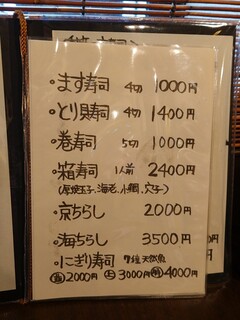 ・ます寿司 4切 1000円
・とり貝寿司 4切 1400円
・巻寿司 5切 1000円
・箱寿司 1人前 2400円
(厚焼玉子、海老、小鯛、穴子)
・京ちらし 2000円
・海ちらし 3500円
・にぎり寿司 7種 天然魚
並2000円 上3000円 特4000円